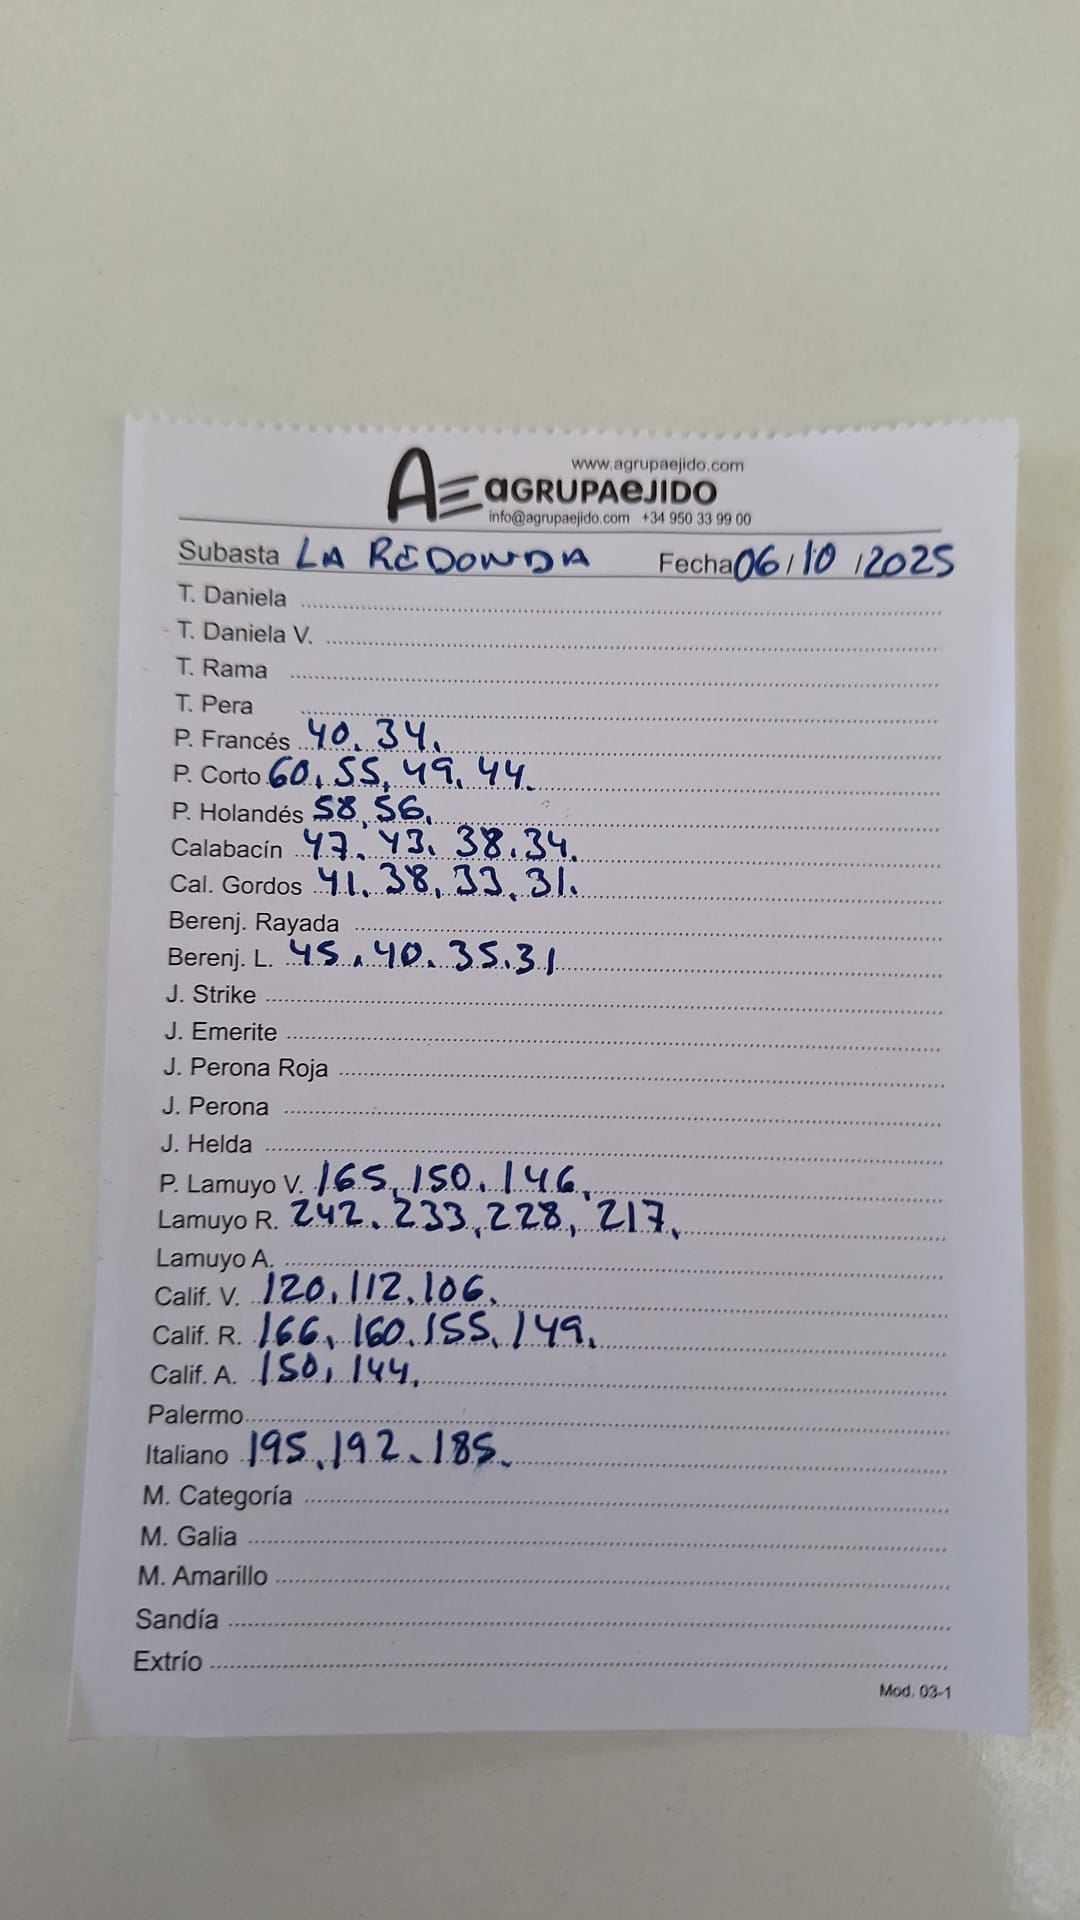 www.agrupaejido.com
AE aGRUPAeJIDO
info@agrupaejido.com +34 950 33 99 00
Subasta LA REDONDA Fecha 06/10/2025
T. Daniela
T. Daniela V.
T. Rama
T. Pera
P. Francés 40, 34,
P. Corto 60, 55, 49, 44.
P. Holandés 58, 56,
Calabacín 47, 43, 38, 34.
Cal. Gordos 41, 38, 33, 31.
Berenj. Rayada
Berenj. L. 45, 40, 35, 31
J. Strike
J. Emerite
J. Perona Roja
J. Perona
J. Helda
P. Lamuyo V. 165, 150, 146,
Lamuyo R. 242, 233, 228, 217,
Lamuyo A.
Calif. V. 120, 112, 106,
Calif. R. 166, 160, 155, 149,
Calif. A. 150, 144,
Palermo
Italiano 195, 192, 185,
M. Categoría
M. Galia
M. Amarillo
Sandía
Extrío
Mod. 03-1